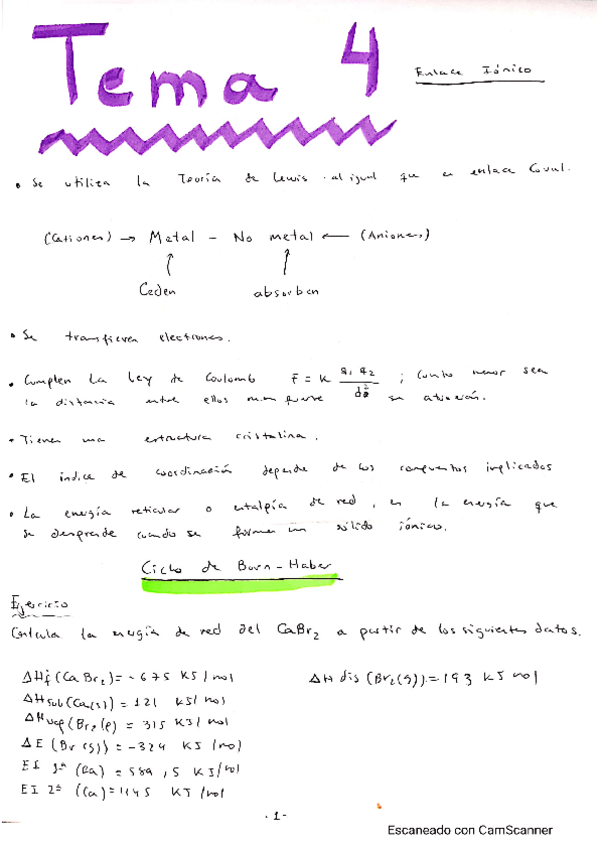 Tema 4
Enlace Iónico
• Se utiliza la Teoría de Lewis al igual que en enlace Coval.
(Cationes) → Metal - No metal ← (Aniones)
Ceden absorben
• Se transfieren electrones.
• Cumplen la Ley de Coulomb F = K q1 q2 / d² ; cuanto menor sea
la distancia entre ellos mas fuerte se atraerán.
• Tienen una estructura cristalina.
• El índice de coordinación depende de los compuestos implicados
• La energía reticular o entalpía de red, es la energía que
se desprende cuando se forma un sólido iónico.
Ciclo de Born-Haber
Ejercicio
Calcula la energía de red del CaBr2 a partir de los siguientes datos.
ΔHf (CaBr2) = -675 KJ/mol
ΔH dis (Br2(g)) = 193 KJ mol
ΔHsub (Ca(s)) = 121 KJ/mol
ΔHvap (Br2(l)) = 315 KJ/mol
ΔE (Br(g)) = -324 KJ/mol
EI 1ª (Ca) = 589,5 KJ/mol
EI 2ª (Ca) = 1145 KJ/mol
-1-
Escaneado con CamScanner